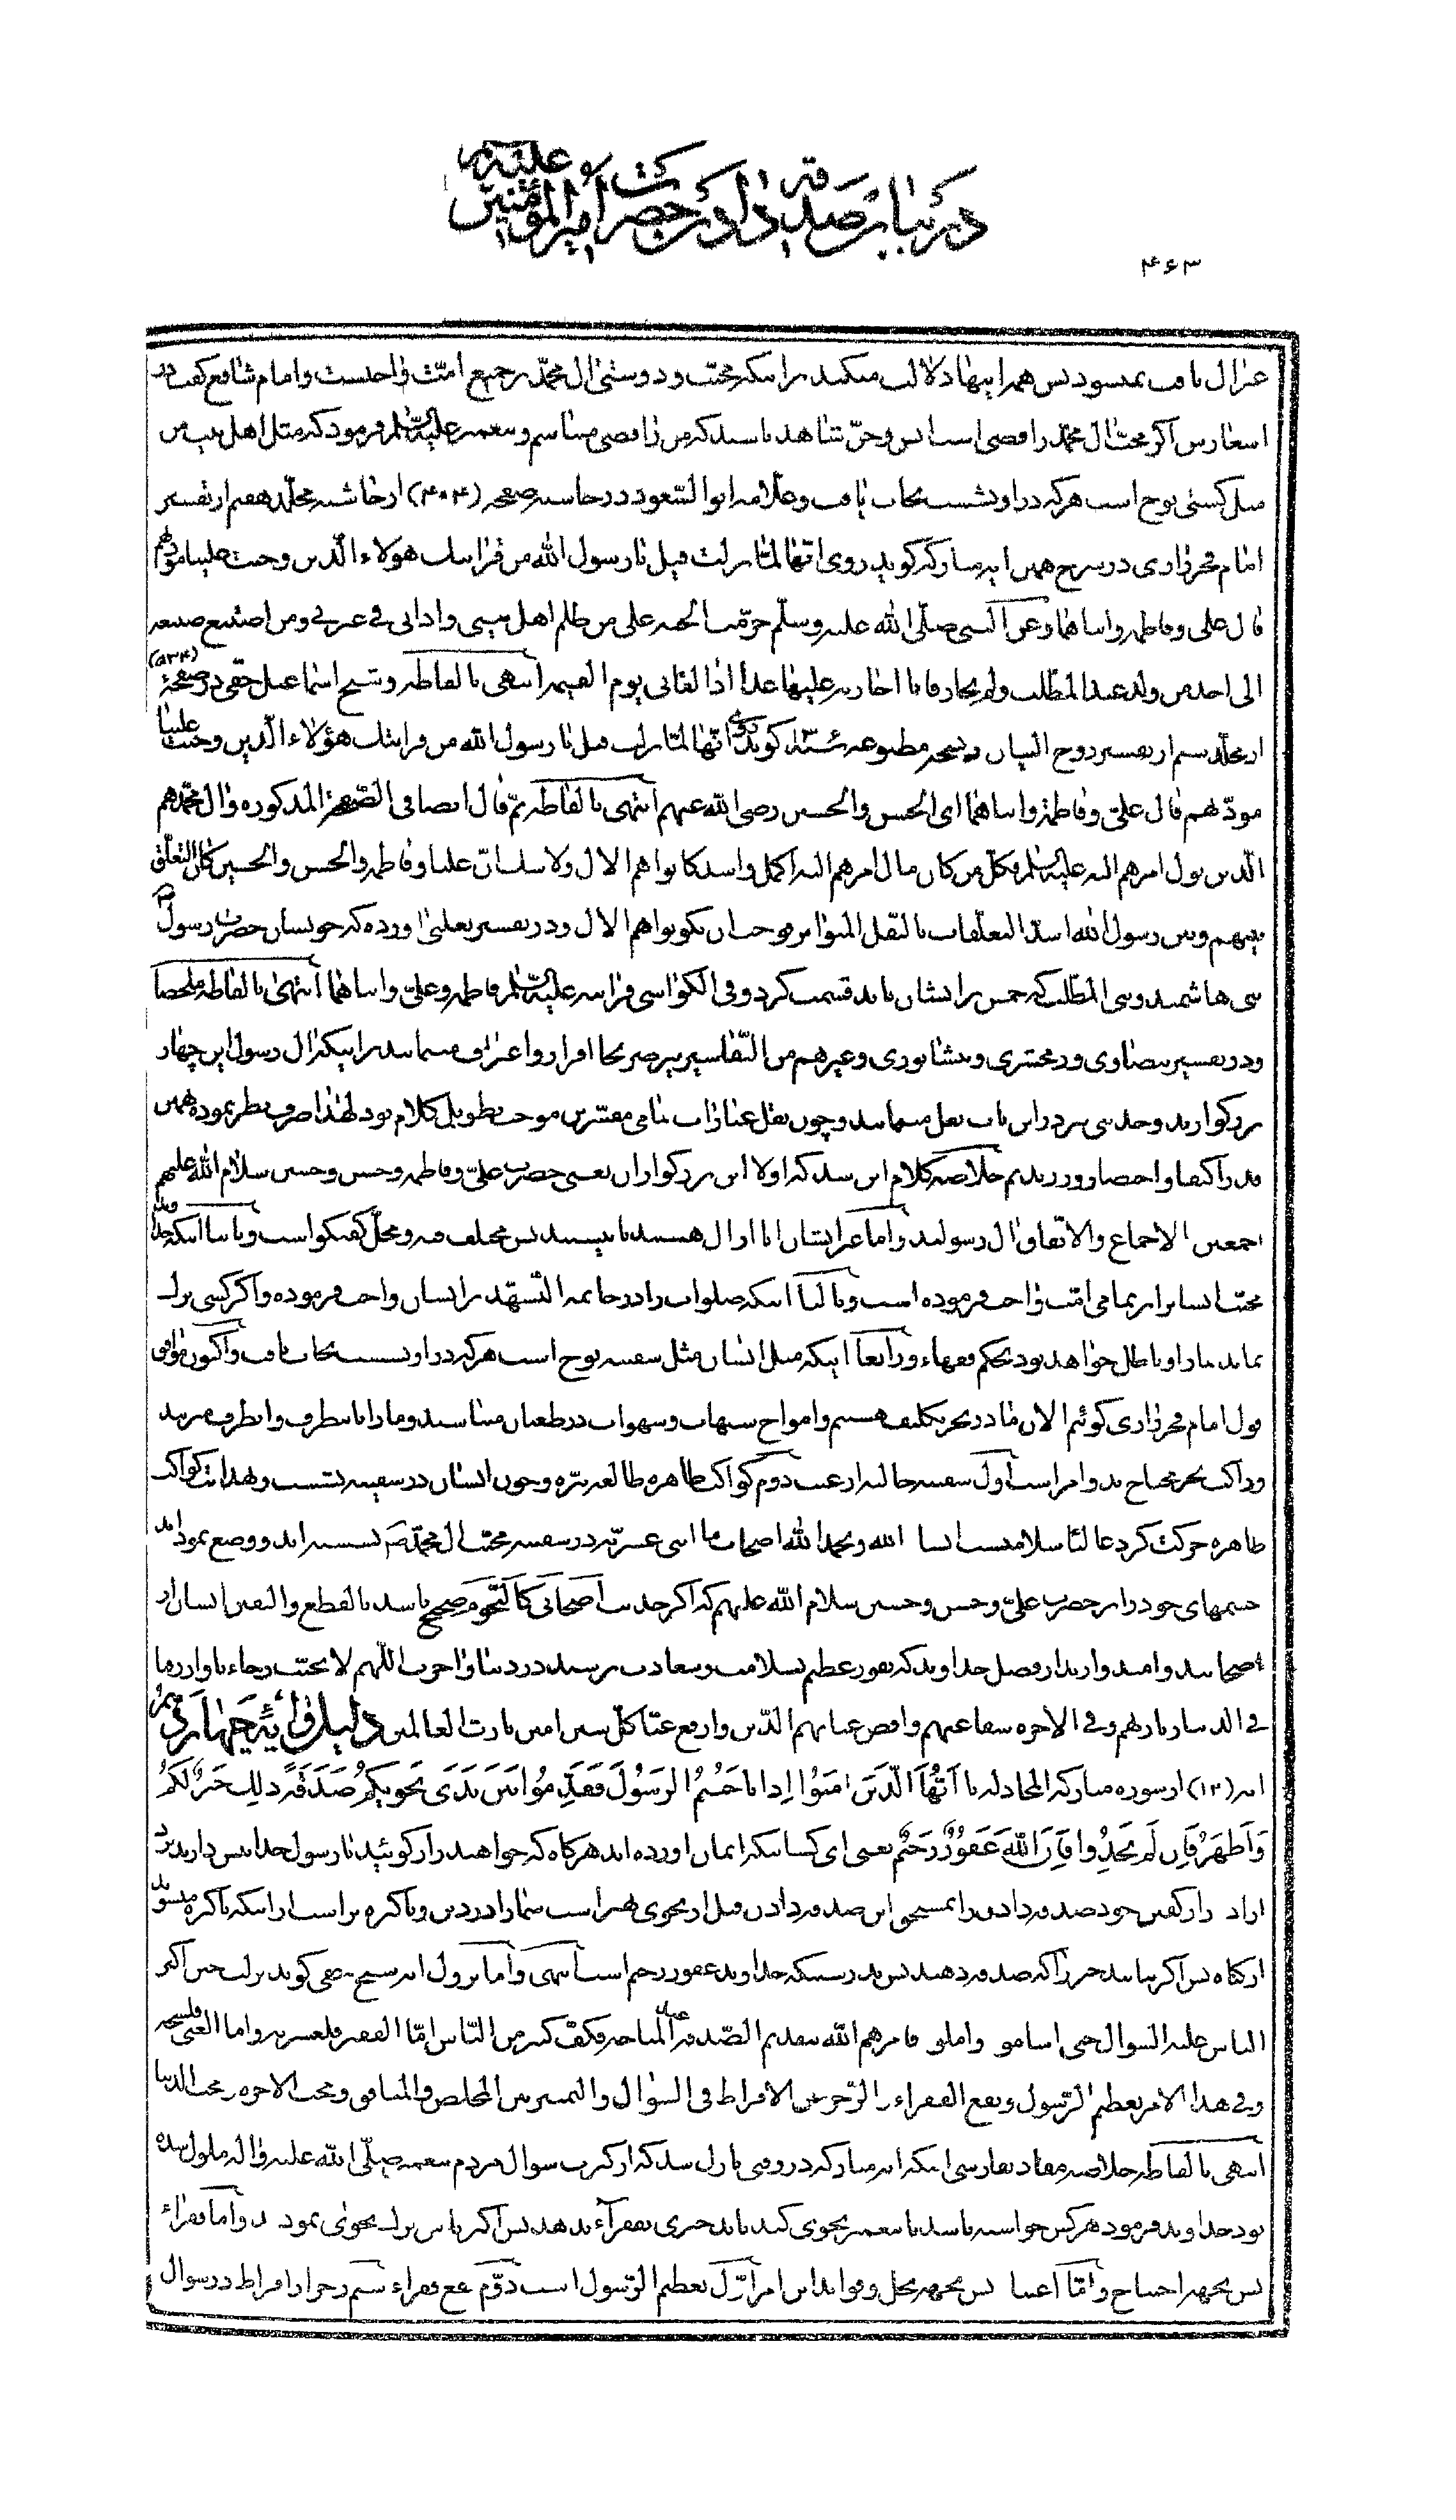 در بیان صدقه دادن حضرت امیر المؤمنین علیه
۴۶۳
غزال یافت نمیشود پس همه اینها دلالت میکند بر اینکه محبّت و دوستی ال محمّد بر جمیع امّت واجبست و امام شافعی گفته در
اشعارش اگر محبّت ال محمّد رافضی است انس و جنّ شاهد باشد که من رافضی میباشم و پیغمبر علیه السّلم فرمود که مثل اهل بیت من
مثل کشتی نوح است هر که در او نشست نجات یافت و علّامه ابو السّعود در حاشیه صفحه (۴۰۴) از حاشیه مجلّد هفتم از تفسیر
امام فخر رازی در شرح همین ایه مبارکه گوید روی انّها لمّا نزلت قیل یا رسول الله من قرابتک هؤلاء الّذین وجبت علینا مودّتهم
قال علی و فاطمه و ابناهما و عن النّبی صلّی الله علیه و سلّم حرّمت الجنّه علی من ظلم اهل بیتی و اذانی فی عترتی و من اصطنع صنیعه
الی احد من ولد عبد المطّلب و لم یجازه فانا اجازیه علیها غدا اذا لقانی یوم القیمه انتهی بالفاظه و شیخ اسماعیل حقّی در صفحه (۵۳۴)
از مجلّد سیم از تفسیر روح البیان نسخه مطبوعه گوید روی انّها لمّا نزلت قیل یا رسول الله من قرابتک هؤلاء الّذین وجبت علینا
مودّتهم قال علیّ و فاطمة و ابناهما ای الحسن و الحسین رضی الله عنهم انتهی بالفاظه ثمّ قال ایضا فی الصّفحة المذکوره و ال محمّد هم
الّذین یؤل امرهم الیه علیه السّلم فکلّ من کان مال امرهم الیه اکمل و اشد کانوا هم الال و لا شک انّ علیا و فاطمه و الحسن و الحسین کان التعلّق
بینهم و بین رسول الله اشدّ التعلّقات بالنّقل المتواتر فوجب ان یکونوا هم الال و در تفسیر ثعلبی اورده که خویشان حضرت رسول ص
بنی هاشمند و بنی المطّلب که خمس بر ایشان باید قسمت کرد و فی الکواشی قرابته علیه السّلم فاطمه و علیّ و ابناهما انتهی بالفاظه ملخصا
و در تفسیر بیضاوی و زمخشری و نیشابوری و غیرهم من التّفاسیر نیز صریحا اقرار و اعتراف مینمایند بر اینکه ال رسول این چهار
بزرگوارند و حدیثی نیز در این باب نقل مینمایند و چون نقل عبارات تمامی مفسّرین موجب تطویل کلام بود لهذا صرف نظر نموده همین
قدر اکتفا و اختصار ورزیدیم خلاصه کلام این شد که اولا این بزرگواران یعنی حضرت علیّ و فاطمه و حسن و حسین سلام الله علیهم
اجمعین الاجماع و الاتّفاق ال رسولند و امّا غیر ایشان ایا از ال هستند یا نیستند پس مختلف فیه و محلّ گفتگو است و ثانیا اینکه خداوند
محبّت ایشانرا بر تمامی امّت واجب فرموده است و ثالثا اینکه صلوات را در خاتمه التّشهّد بر ایشان واجب فرموده و اگر کسی ترک
نماید نماز او باطل خواهد بود بحکم فقهاء و رابعا اینکه مثل ایشان مثل سفینه نوح است هر که در او نشست نجات یافت و اکنون موافق
قول امام فخر رازی گوئیم الان ما در بحر تکلیف هستیم و امواج شبهات و شهوات در طغیان میباشند و ما را باینطرف و انطرف میزنند
و راکب بحر محتاج بدو امر است اوّل سفینه خالیه از عیب دوّم کواکب ظاهره طالعه نیّره و چون انسان در سفینه نشست و بهدایت کواکب
ظاهره حرکت کرد غالبا سلامتست انشا الله و بحمد الله اصحاب ما اثنی عشریّه در سفینه محبّت ال محمّد ص نشسته اند و وضع نموده اند
چشمهای خود را بر حضرت علیّ و حسن و حسین سلام الله علیهم که اگر حدیث اصحابی کالنّجوم صحیح باشد بالقطع و الیقین ایشان از
اصحابند و امیدوارند از فضل خداوند که بفوز عظیم بسلامت و سعادت برسند در دنیا و اخرت اللّهم لا تخیّب رجاءنا و ارزقنا
فی الدنیا زیارتهم و فی الاخره شفاعتهم و اقض عنا بهم الدّین و ارفع عنّا کلّ شین امین یا ربّ العالمین دلیل و ایه چهاردهم
ایه (۱۲) از سوره مبارکه المجادله یا اَیُّهَا الَّذینَ امَنُوا اِذا ناجَیْتُمُ الرَسُولَ فَقَدِّمُوا بَیْنَ یَدَیْ نَجْویکُمْ صَدَقَةً ذلِکَ خَیْرٌ لَکُمْ
وَ اَطْهَرُ فَاِن لَمْ تَجِدُوا فَاِنَّ اللهَ غَفُورٌ رَحیمٌ یعنی ای کسانیکه ایمان اورده اند هرگاه که خواهید راز گوئید با رسول خدا پس دارید نزد
اراد راز گفتن خود صدقه دادنرا بمستحق این صدقه دادن قبل از نجوی بهتر است شما را در دین و پاکیزه تر است از اینکه پاکیزه میشوید
از گناه پس اگر نیابید چیزیرا که صدقه دهید پس بدرستیکه خداوند غفور رحیم است انتهی و امّا نزول ایه شیخ حقّی گوید نزلت حین اکثر
الناس علیه السّوال حتی اساموه و املوه فامرهم الله بتقدیم الصّدقه عند المناجاه فکفّ کثیر من النّاس امّا الفقیر فلعسرته و اما الغنی فلشحّه
و فی هذا الامر تعظیم الرّسول و نفع الفقراء و الزّجر عن الافراط فی السّوال و التمییز بین المخلص و المنافق و محبّ الاخره و محبّ الدنیا
انتهی بالفاظه خلاصه مفاد بفارسی اینکه ایه مبارکه در وقتی نازل شد که از کثرت سوال مردم پیغمبر صلّی الله علیه و اله ملول شده
بود خداوند فرمود هر کس خواسته باشد با پیغمبر نجوی کند باید چیزی بفقراء بدهد پس اکثر ناس ترک نجوی نمودند و امّا فقراء
پس بجهه احتیاج و امّا اغنیا پس بجهه بخل و فواید این امر اوّل تعظیم الرّسول است دوّم نفع فقراء سیّم زجر از افراط در سوال